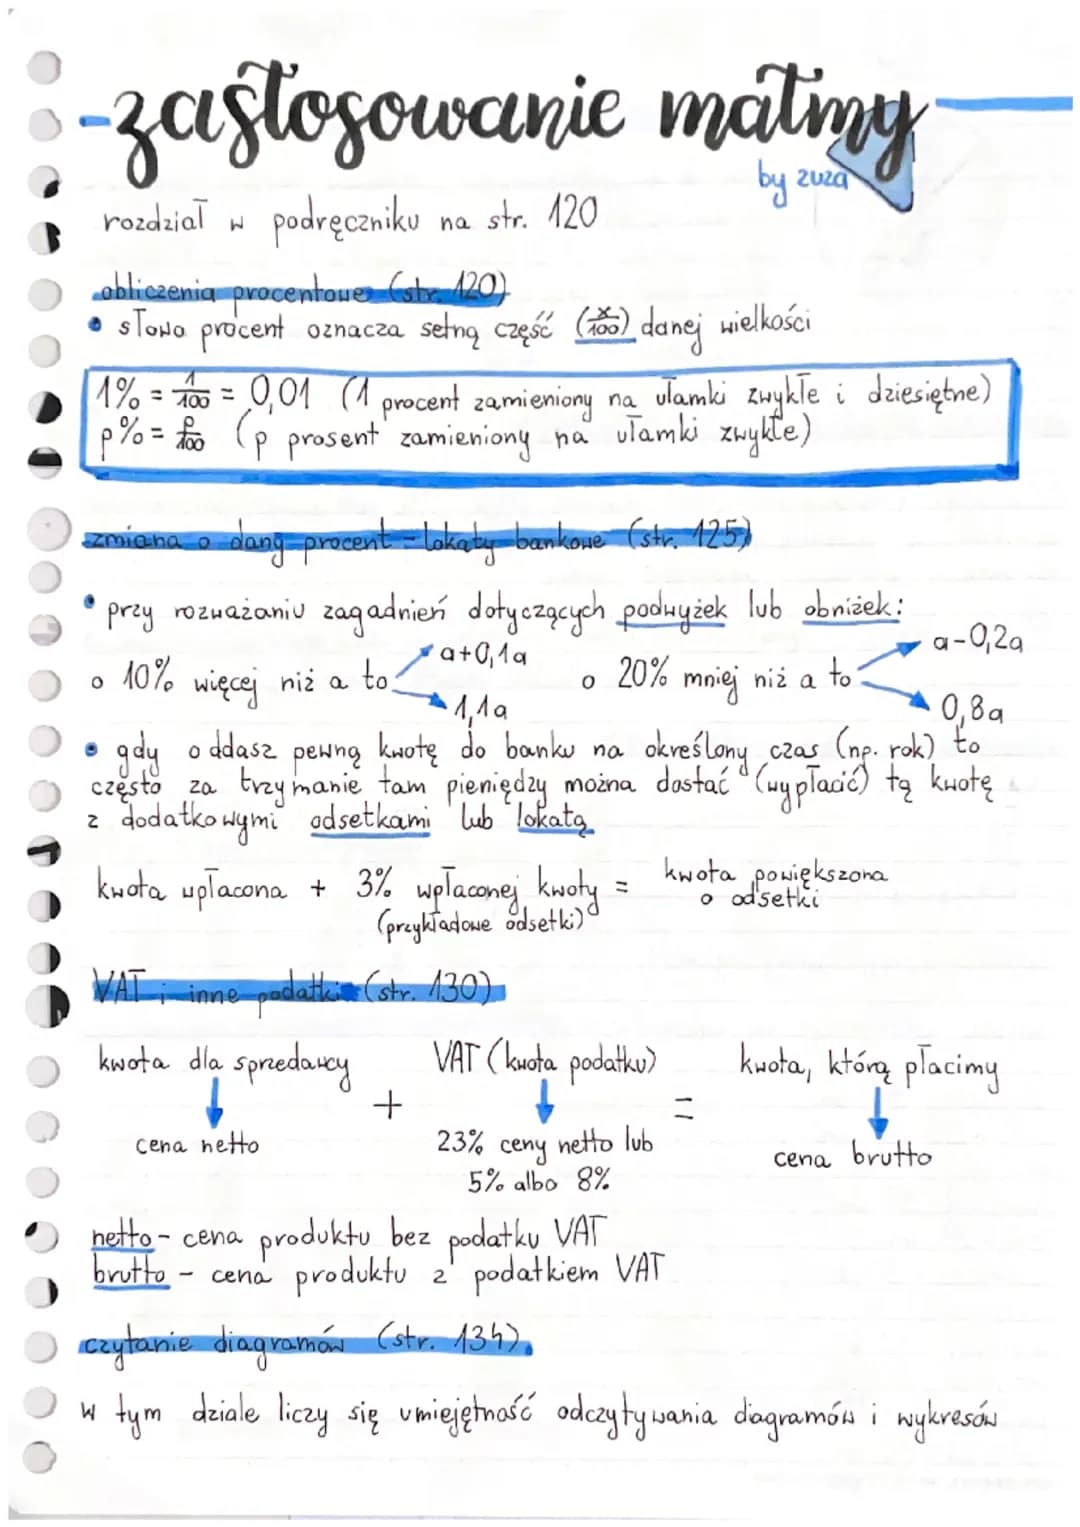 -zastosowanie matmy-
by zuza
rozdział w podręczniku na str. 120
obliczenia procentowe (str. 120)
• słowo procent oznacza setną część (x/100) danej wielkości
1% = 1/100 = 0,01 (1 procent zamieniony na ułamki zwykłe i dziesiętne)
p% = p/100 (p prosent zamieniony na ułamki zwykłe)
zmiana o dany procent - lokaty bankowe (str. 125)
• przy rozważaniu zagadnień dotyczących podwyżek lub obniżek:
o 10% więcej niż a to a+0,1a 1,1a o 20% mniej niż a to a-0,2a 0,8a
• gdy oddasz pewną kwotę do banku na określony czas (np. rok) to
często za trzymanie tam pieniędzy można dostać (wypłacić) tą kwotę
z dodatkowymi odsetkami lub lokatą
kwota wpłacona + 3% wpłaconej kwoty = kwota powiększona
(przykładowe odsetki) o odsetki
VAT i inne podatki (str. 130)
kwota dla sprzedawcy + VAT (kwota podatku) = kwota, którą płacimy
cena netto 23% ceny netto lub cena brutto
5% albo 8%
netto - cena produktu bez podatku VAT
brutto - cena produktu z podatkiem VAT
czytanie diagramów (str. 134)
w tym dziale liczy się umiejętność odczytywania diagramów i wykresów